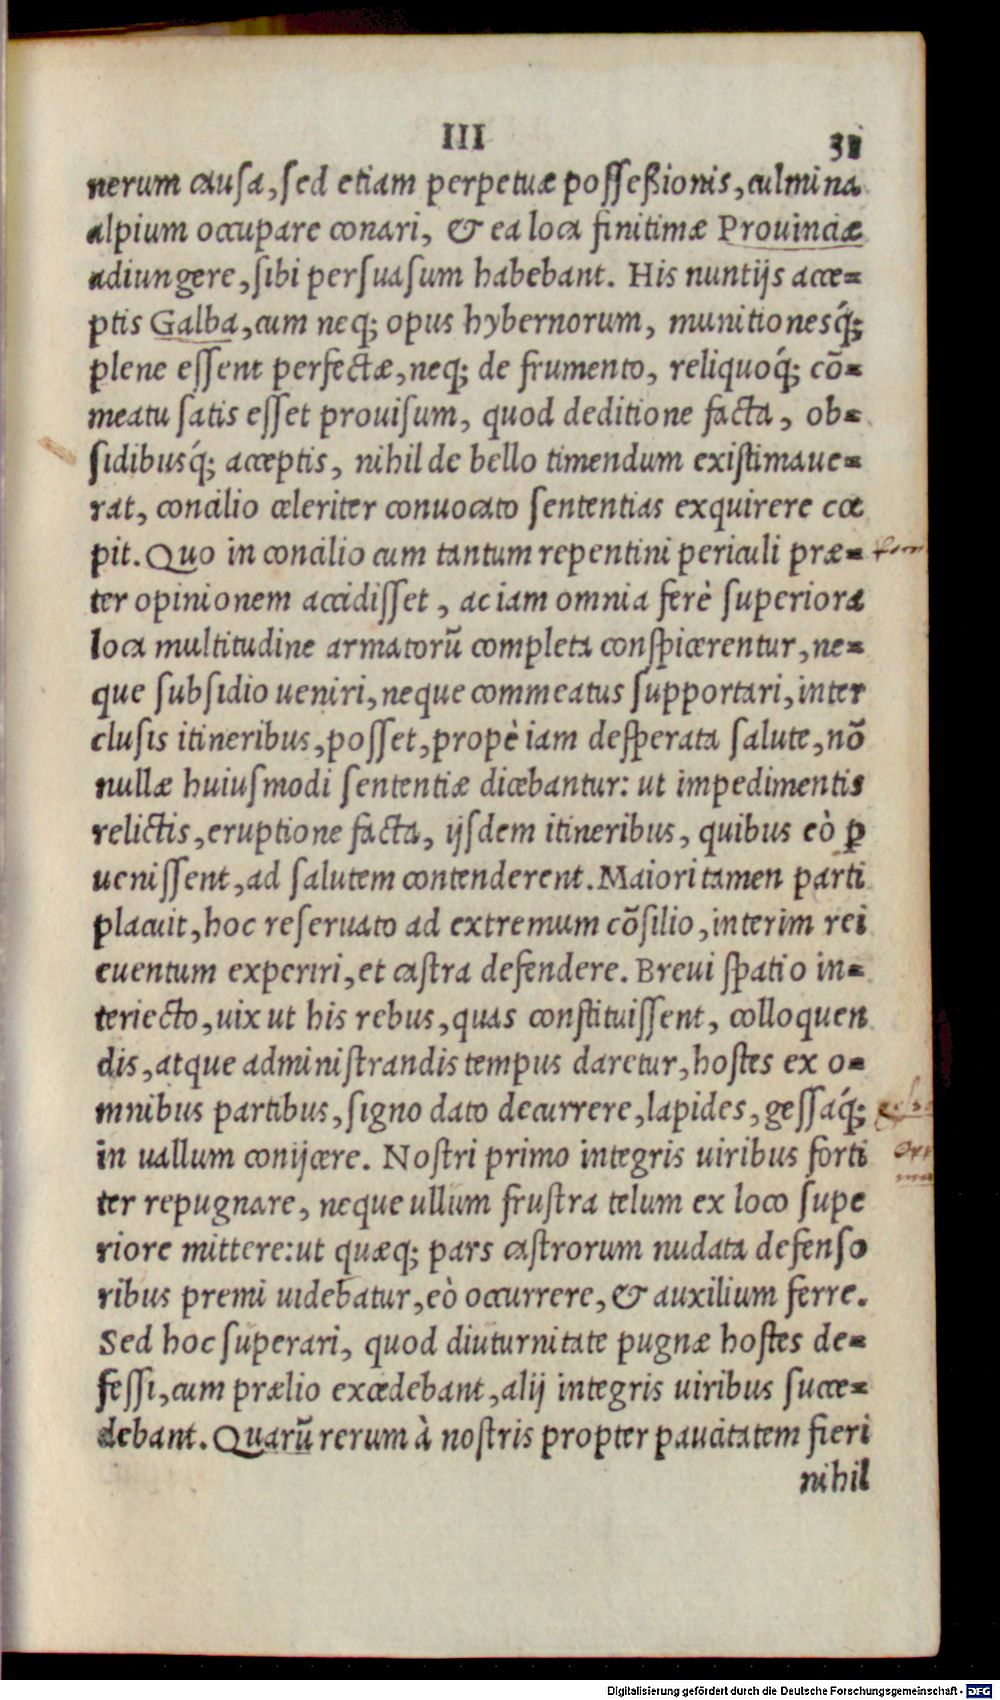 III
nerum causa, sed etiam perpetuæ posseßionis, culmina
alpium occupare conari, & ea loca finitimæ Prouinciæ
adiungere, sibi persuasum habebant. His nuntijs acce-
ptis Galba, cum neq; opus hybernorum, munitionesq́;
plene essent perfectæ, neq; de frumento, reliquoq́; cō-
meatu satis esset prouisum, quod deditione facta, ob-
sidibusq́; acceptis, nihil de bello timendum existimaue-
rat, concilio celeriter conuocato sententias exquirere cœ
pit. Quo in concilio cum tantum repentini periculi præ-
ter opinionem accidisset, ac iam omnia ferè superiora
loca multitudine armatorū completa conspicerentur, ne-
que subsidio ueniri, neque commeatus supportari, inter
clusis itineribus, posset, propè iam desperata salute, nō
nullæ huiusmodi sententiæ dicebantur: ut impedimentis
relictis, eruptione facta, ijsdem itineribus, quibus eò ꝑ
uenissent, ad salutem contenderent. Maiori tamen parti
placuit, hoc reseruato ad extremum cōsilio, interim rei
euentum experiri, et castra defendere. Breui spatio in-
teriecto, uix ut his rebus, quas constituissent, colloquen
dis, atque administrandis tempus daretur, hostes ex o-
mnibus partibus, signo dato decurrere, lapides, gessaq́;
in uallum conijcere. Nostri primo integris uiribus forti
ter repugnare, neque ullum frustra telum ex loco supe
riore mittere: ut quæq; pars castrorum nudata defenso
ribus premi uidebatur, eò occurrere, & auxilium ferre.
Sed hoc superari, quod diuturnitate pugnæ hostes de-
fessi, cum prælio excedebant, alij integris uiribus succe-
debant. Quarū rerum à nostris propter paucitatem fieri
nihil
Digitalisierung gefördert durch die Deutsche Forschungsgemeinschaft - DFG